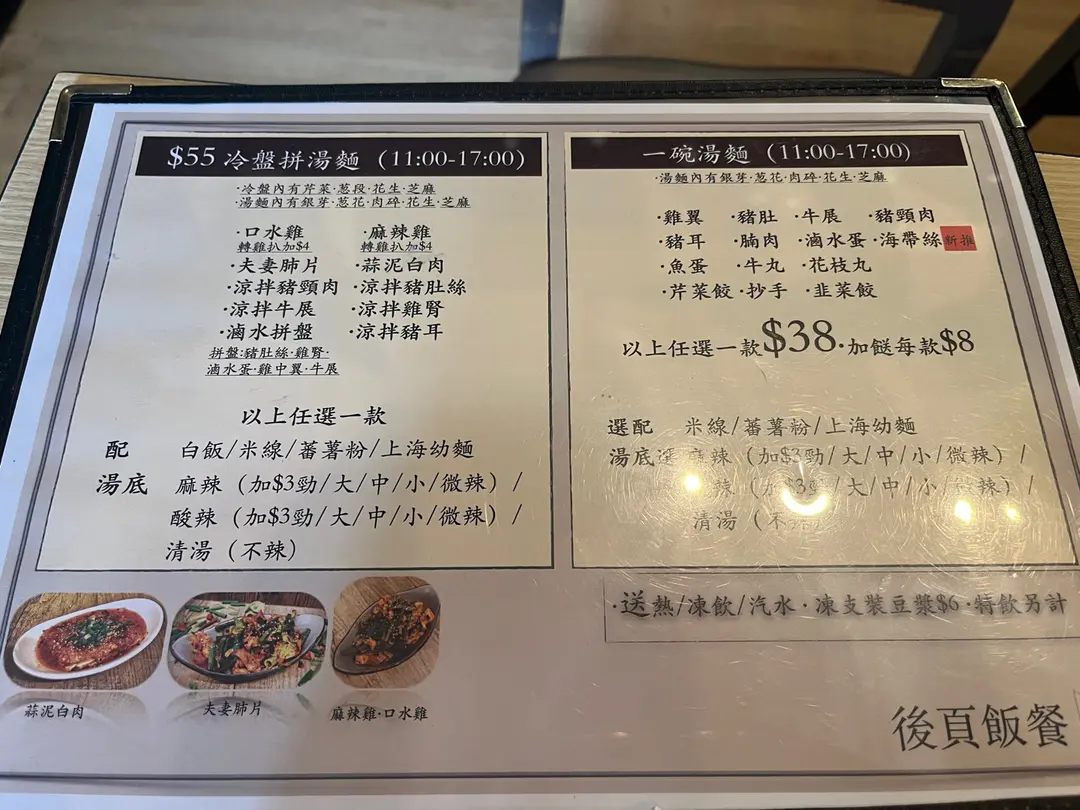 $55 冷盤拼湯麵 (11:00-17:00)
·冷盤內有芹菜·葱段·花生·芝麻
·湯麵內有銀芽·葱花·肉碎·花生·芝麻
·口水雞 ·麻辣雞
轉雞扒加$4 轉雞扒加$4
·夫妻肺片 ·蒜泥白肉
·涼拌豬頸肉 ·涼拌豬肚絲
·涼拌牛展 ·涼拌雞腎
·滷水拼盤 ·涼拌豬耳
拼盤:豬肚絲·雞腎·
滷水蛋·雞中翼·牛展
以上任選一款
配 白飯/米線/蕃薯粉/上海幼麵
湯底 麻辣 (加$3勁/大/中/小/微辣) /
酸辣 (加$3勁/大/中/小/微辣) /
清湯 (不辣)
一碗湯麵 (11:00-17:00)
·湯麵內有銀芽·葱花·肉碎·花生·芝麻
·雞翼 ·豬肚 ·牛展 ·豬頸肉
·豬耳 ·腩肉 ·滷水蛋 ·海帶絲 新推
·魚蛋 ·牛丸 ·花枝丸
·芹菜餃 ·抄手 ·韭菜餃
以上任選一款$38·加餸每款$8
選配 米線/蕃薯粉/上海幼麵
湯底選 麻辣 (加$3勁/大/中/小/微辣) /
辣 (加$3勁/大/中/小/微辣) /
清湯 (不辣)
·送熱/凍飲/汽水·凍支裝豆漿$6·特飲另計
蒜泥白肉
夫妻肺片
麻辣雞·口水雞
後頁飯餐